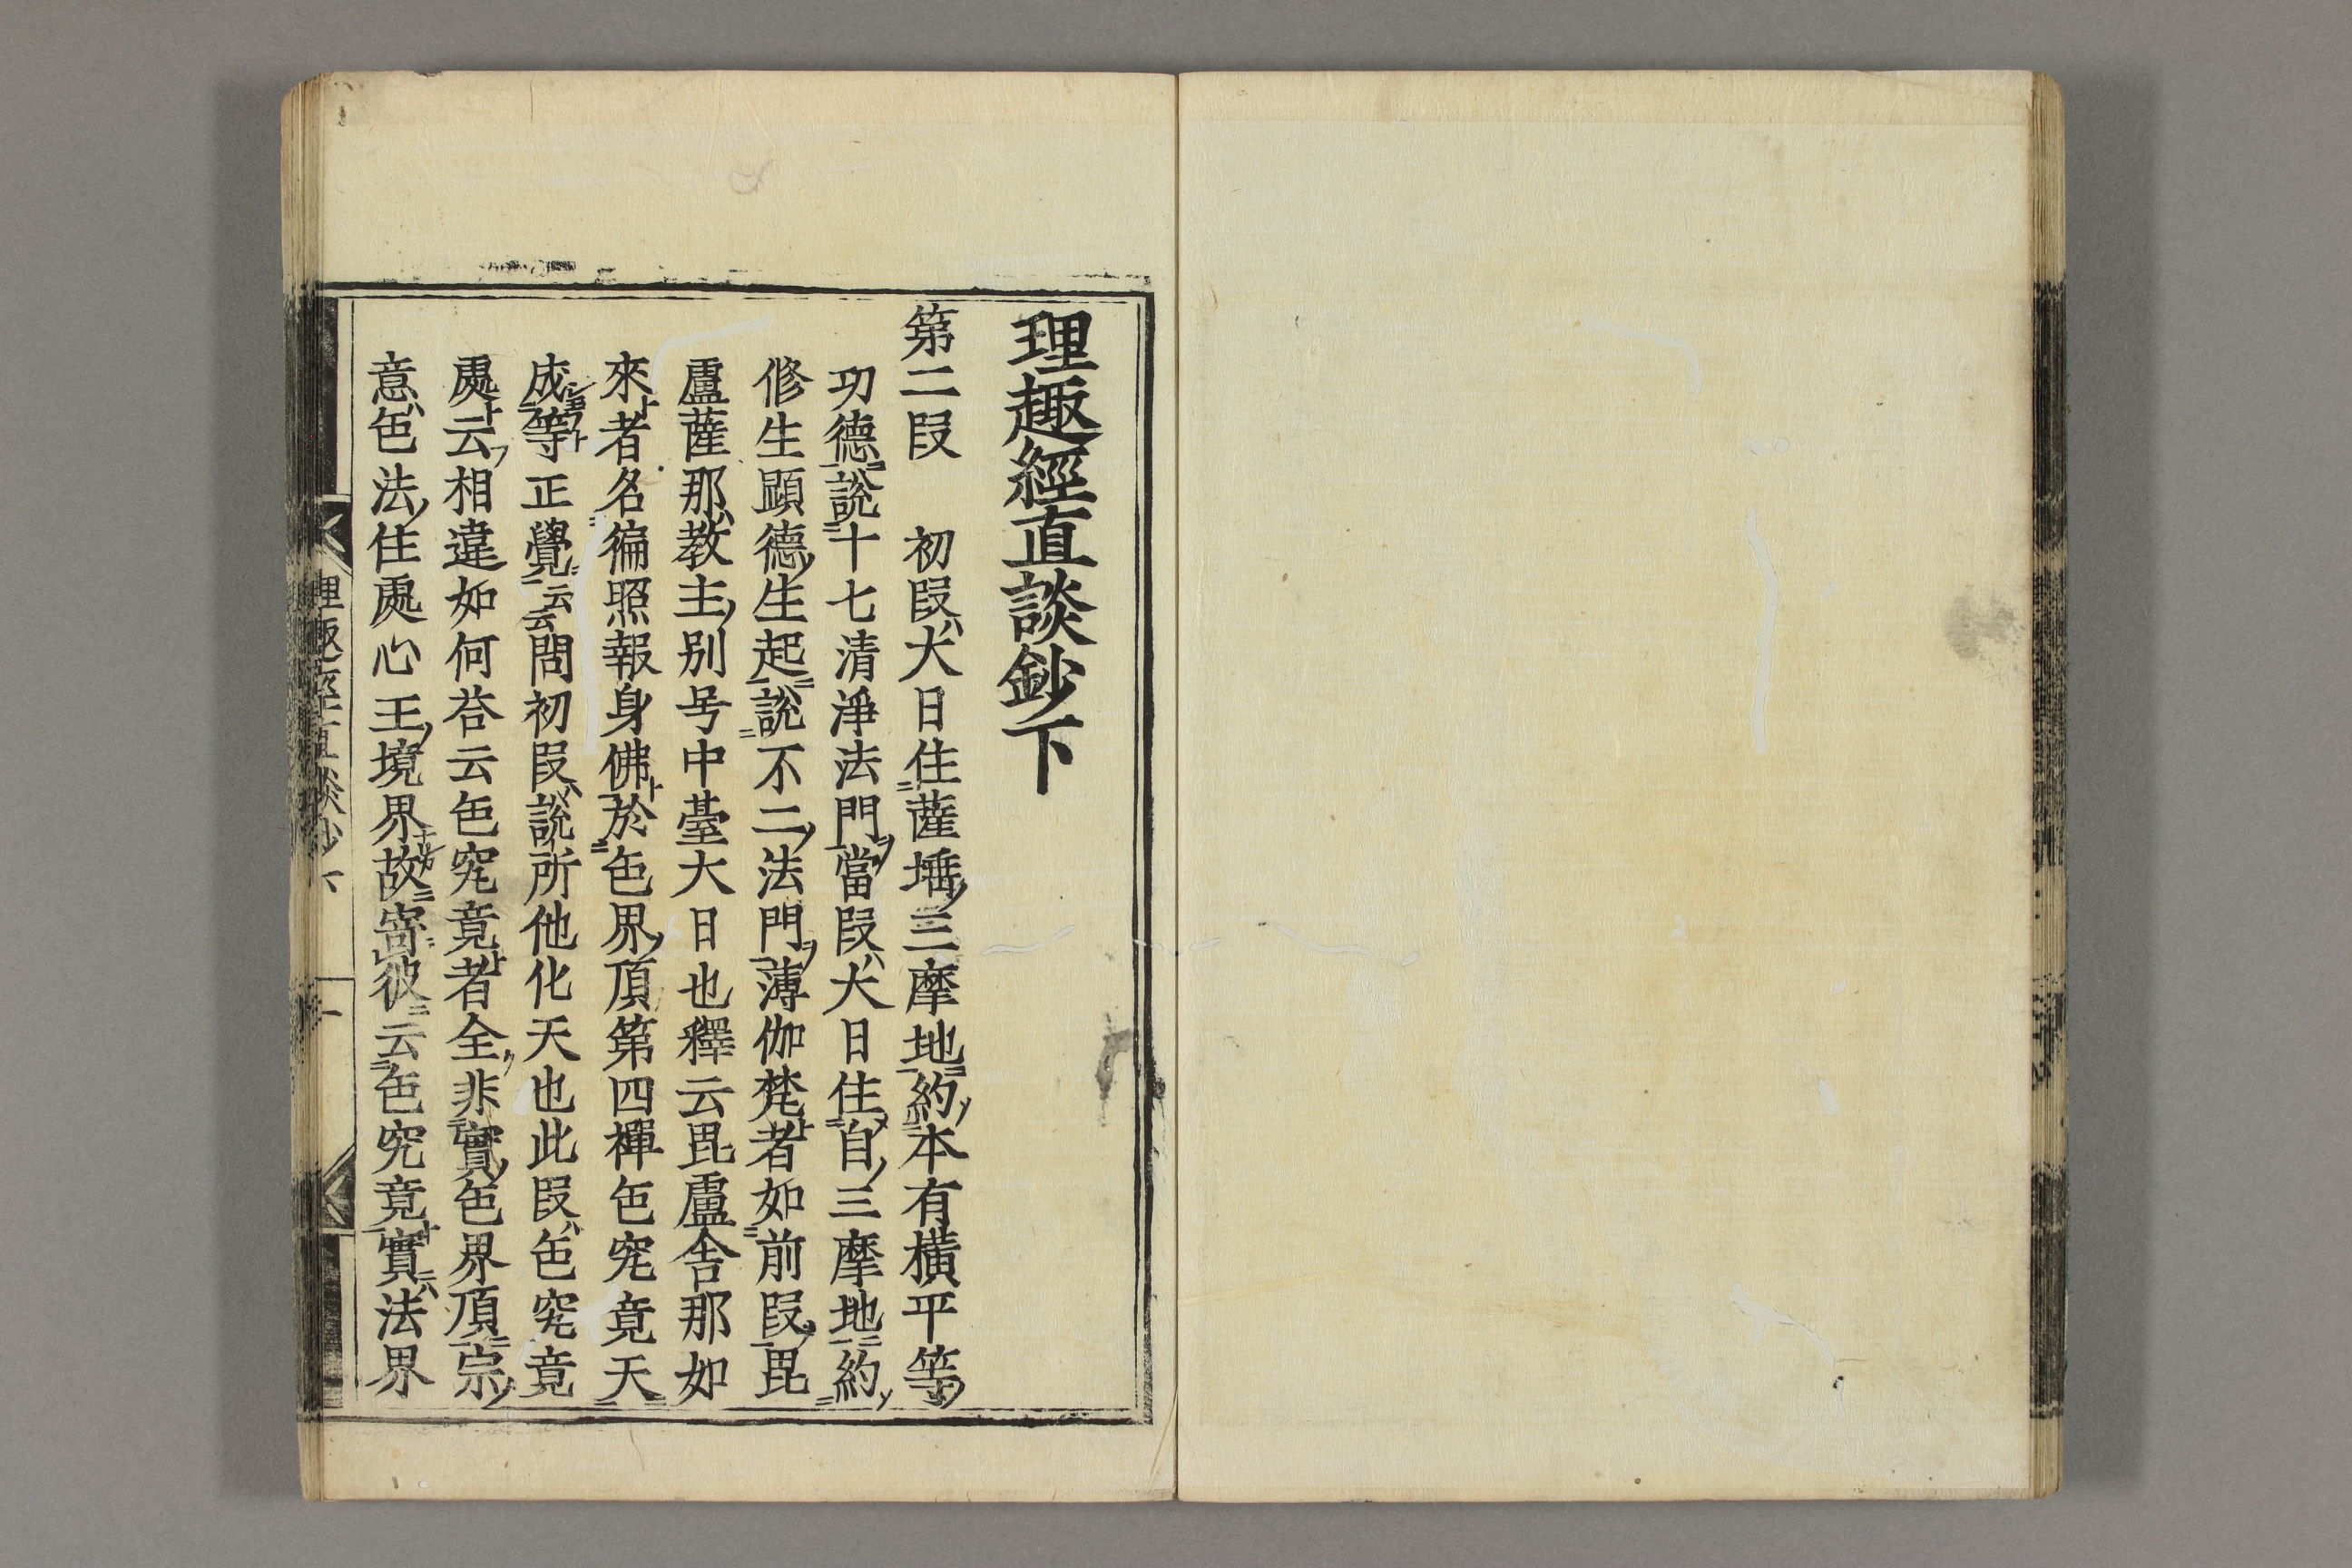 理趣經直談鈔下
第二段　初段ハ大日住薩埵三摩地約本有橫平等
功德說十七清淨法門當段ハ大日住自三摩地約
修生顯德生起說不二法門薄伽梵ト者如前段毘
盧薩那ハ教主別号中臺大日也釋云毘盧舍那如
來ト者名徧照報身佛ト於色界頂第四禪色究竟天
成等正覺云云問初段ハ說所他化天也此段ハ色究竟
處ト云フ相違如何荅云色究竟ト者全非實色界頂宗
意ハ色法住處心王境界故寄彼云色究竟ト實ニハ法界
理趣經直談鈔下　一